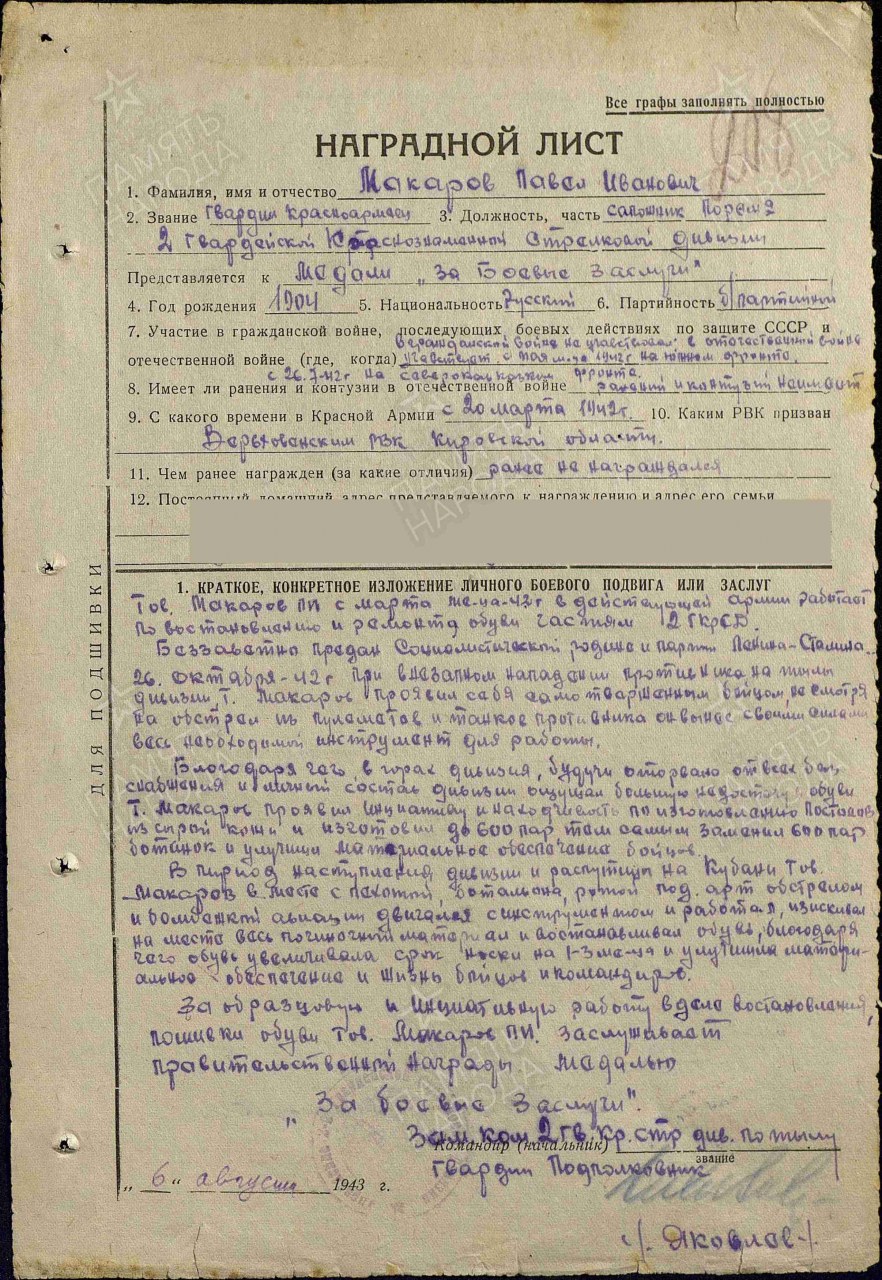 Все графы заполнять полностью
НАГРАДНОЙ ЛИСТ
1. Фамилия, имя и отчество Макаров Павел Иванович
2. Звание Гвардии Красноармеец 3. Должность, часть сапожник
2 Гвардейской Краснознаменной Стрелковой дивизии
Представляется к Медали „За Боевые Заслуги"
4. Год рождения 1904 5. Национальность Русский 6. Партийность б/партийный
7. Участие в гражданской войне, последующих боевых действиях по защите СССР и
в гражданской войне не участвовал; в отечественной войне
отечественной войне (где, когда) участвует с мая м-ца 1942г на южном фронте,
с 26.7-42г на северокавказком фронте.
8. Имеет ли ранения и контузии в отечественной войне ранений и контузий не имеет
9. С какого времени в Красной Армии с 20 марта 1942г. 10. Каким РВК призван
РВК Кировской области.
11. Чем ранее награжден (за какие отличия) ранее не награждался
12. Постоянный домашний адрес представляемого к награждению и адрес его семьи
ДЛЯ ПОДШИВКИ
1. КРАТКОЕ, КОНКРЕТНОЕ ИЗЛОЖЕНИЕ ЛИЧНОГО БОЕВОГО ПОДВИГА ИЛИ ЗАСЛУГ
Тов. Макаров ПИ с марта ме-ца-42г в действующей армии работает
по востановлению и ремонту обуви частям 2 ГКрСД.
Беззаветно предан Социалистической родине и партии Ленина-Сталина.
26. октября-42г при внезапном нападении противника на тылы
дивизии Т. Макаров проявил себя самотверженным бойцом, не смотря
на обстрел из пулеметов и танков противника он вынес своими силами
весь необходимой инструмент для работы.
Благодаря чего, в горах дивизия, будучи оторвано от всех баз
снабжения и личный состав дивизии ощущал большую недостачу обуви
Т. Макаров проявил инициативу и находчивость по изготовлению Постолов
из сырой кожи и изготовил до 600 пар тем самым заменил 600 пар
ботинок и улучшил материальное обеспечение бойцов.
В период наступления дивизии и распутицы на Кубани Тов.
Макаров в месте с пехотой, ротой под. арт обстрелом
и бомбежкой авиации двигался с инструментом и работал, изыскивал
на месте весь починочный материал и востанавливал обувь, благодаря
чего обувь увеличивала срок носки на 1-3 ме-ца и улучшила матери-
альное обеспечение и жизнь бойцов и командиров.
За образцовую и инициативную работу в деле востановления,
пошивки обуви Тов. Макаров ПИ. заслуживает
правительственный награды Медалью
„За боевые заслуги".
Зам. ком 2 гв. кр. стр див. по тылу
Командир (начальник)
звание
Гвардии Подполковник
„ 6 " августа 1943 г.
/Яковлев/
ПАМЯТЬ НАРОДА